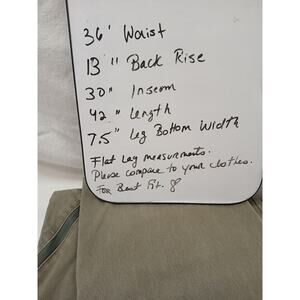 36' Waist
13" Back Rise
30" Inseam
42" Length
7.5" Leg Bottom Width
Flat Lay measurments.
Please compare to your clothes.
For Best Fit.